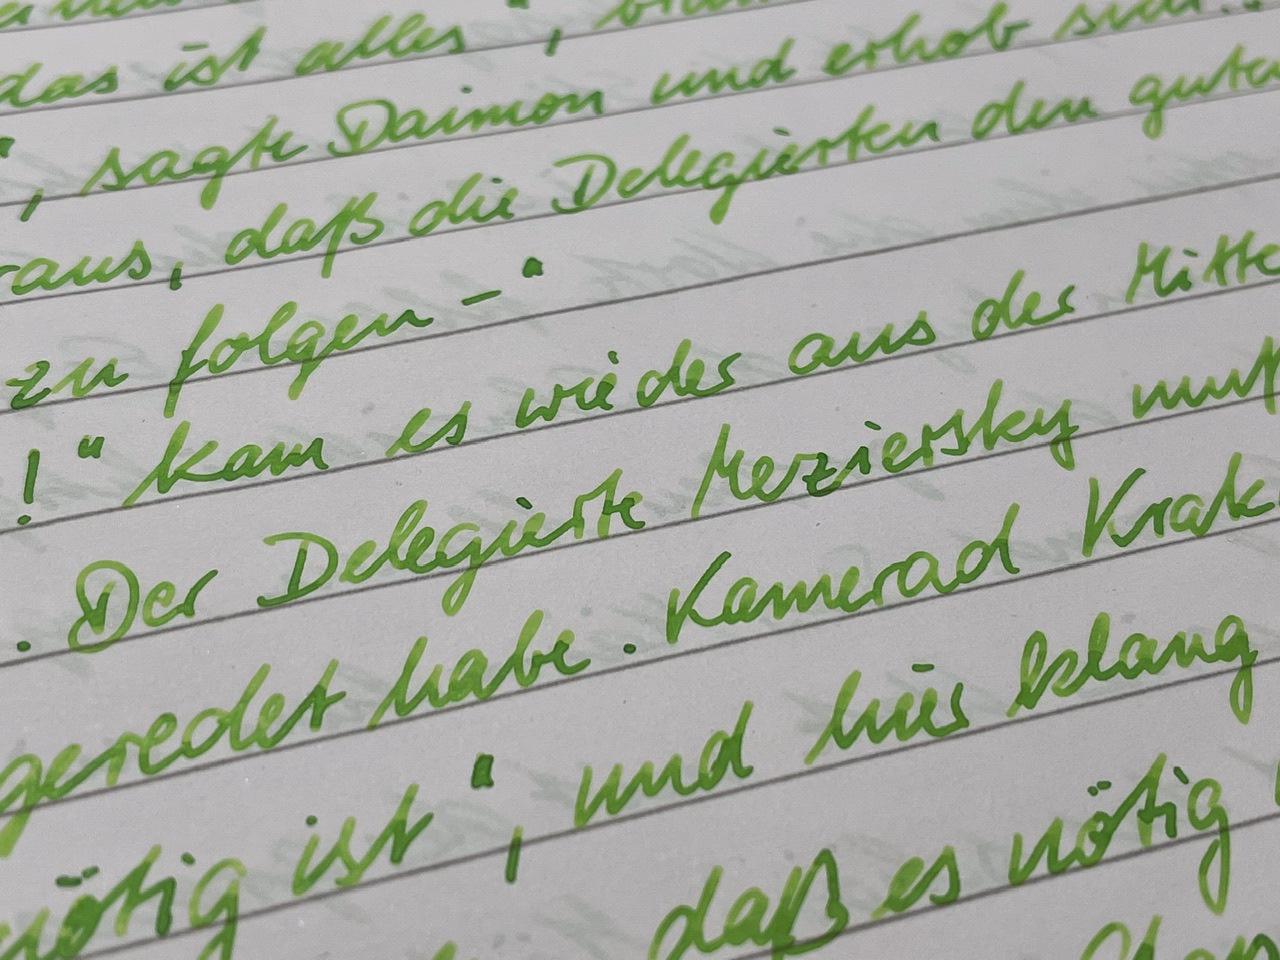 das ist alles",
", sagte Daimon und erhob sich.
raus, daß die Delegierten den guten
zu folgen –"
!" kam es wieder aus der Mitte
. Der Delegierte Merziersky
geredet habe. Kamerad Krak
nötig ist", und hier klang
daß es nötig